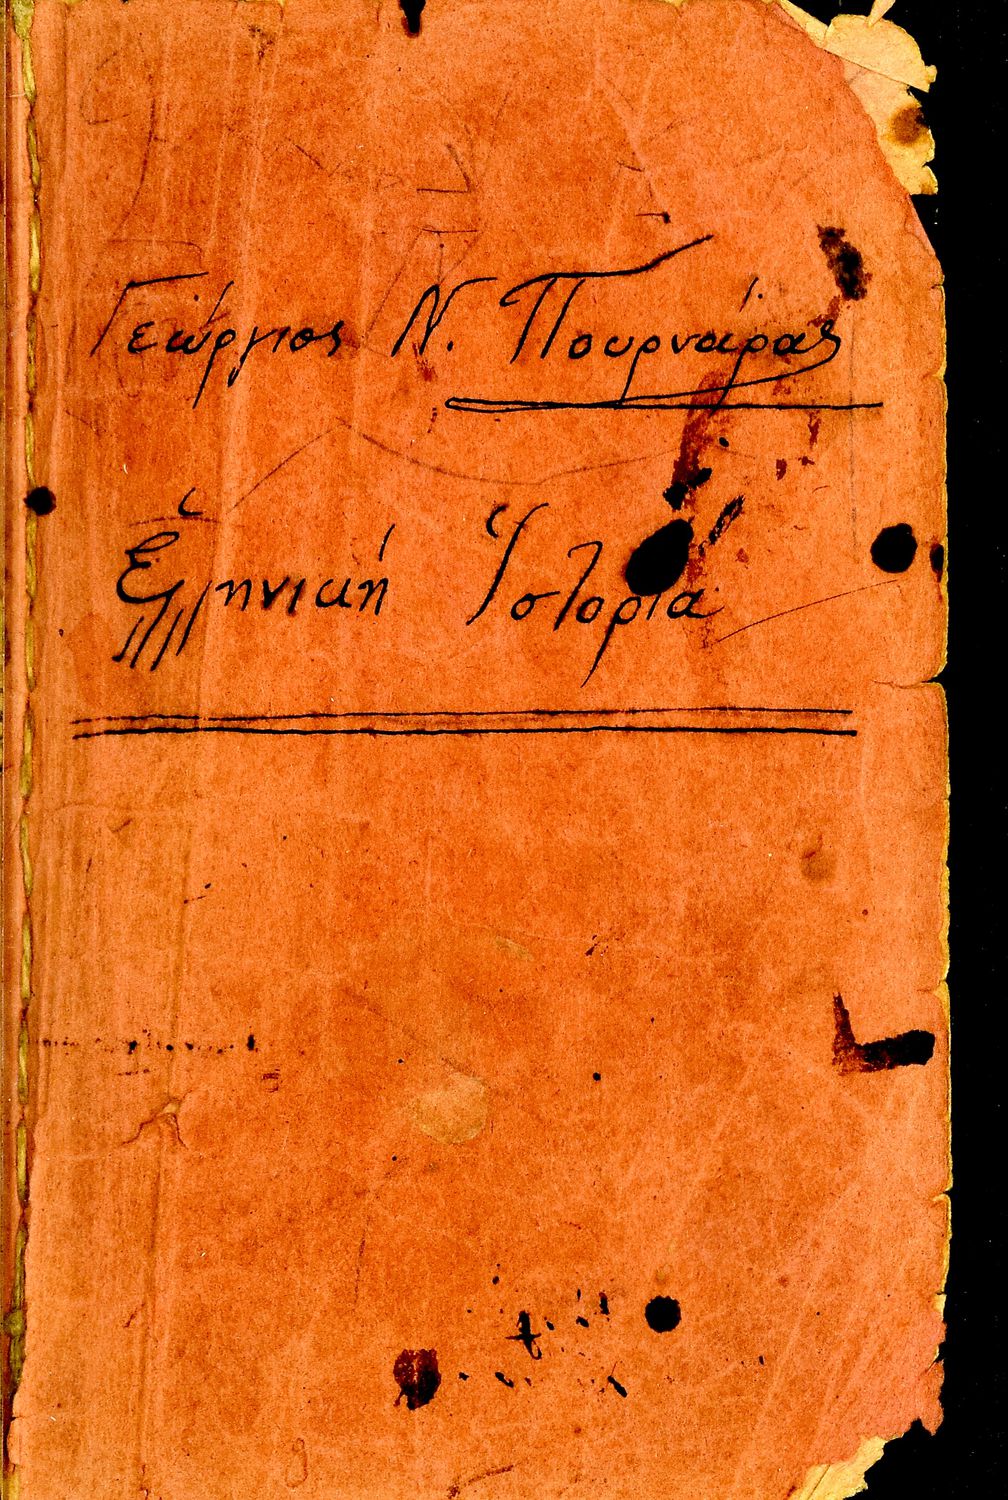 Γεώργιος Ν. Πουρνάρας
Ἑλληνική Ἱστορία